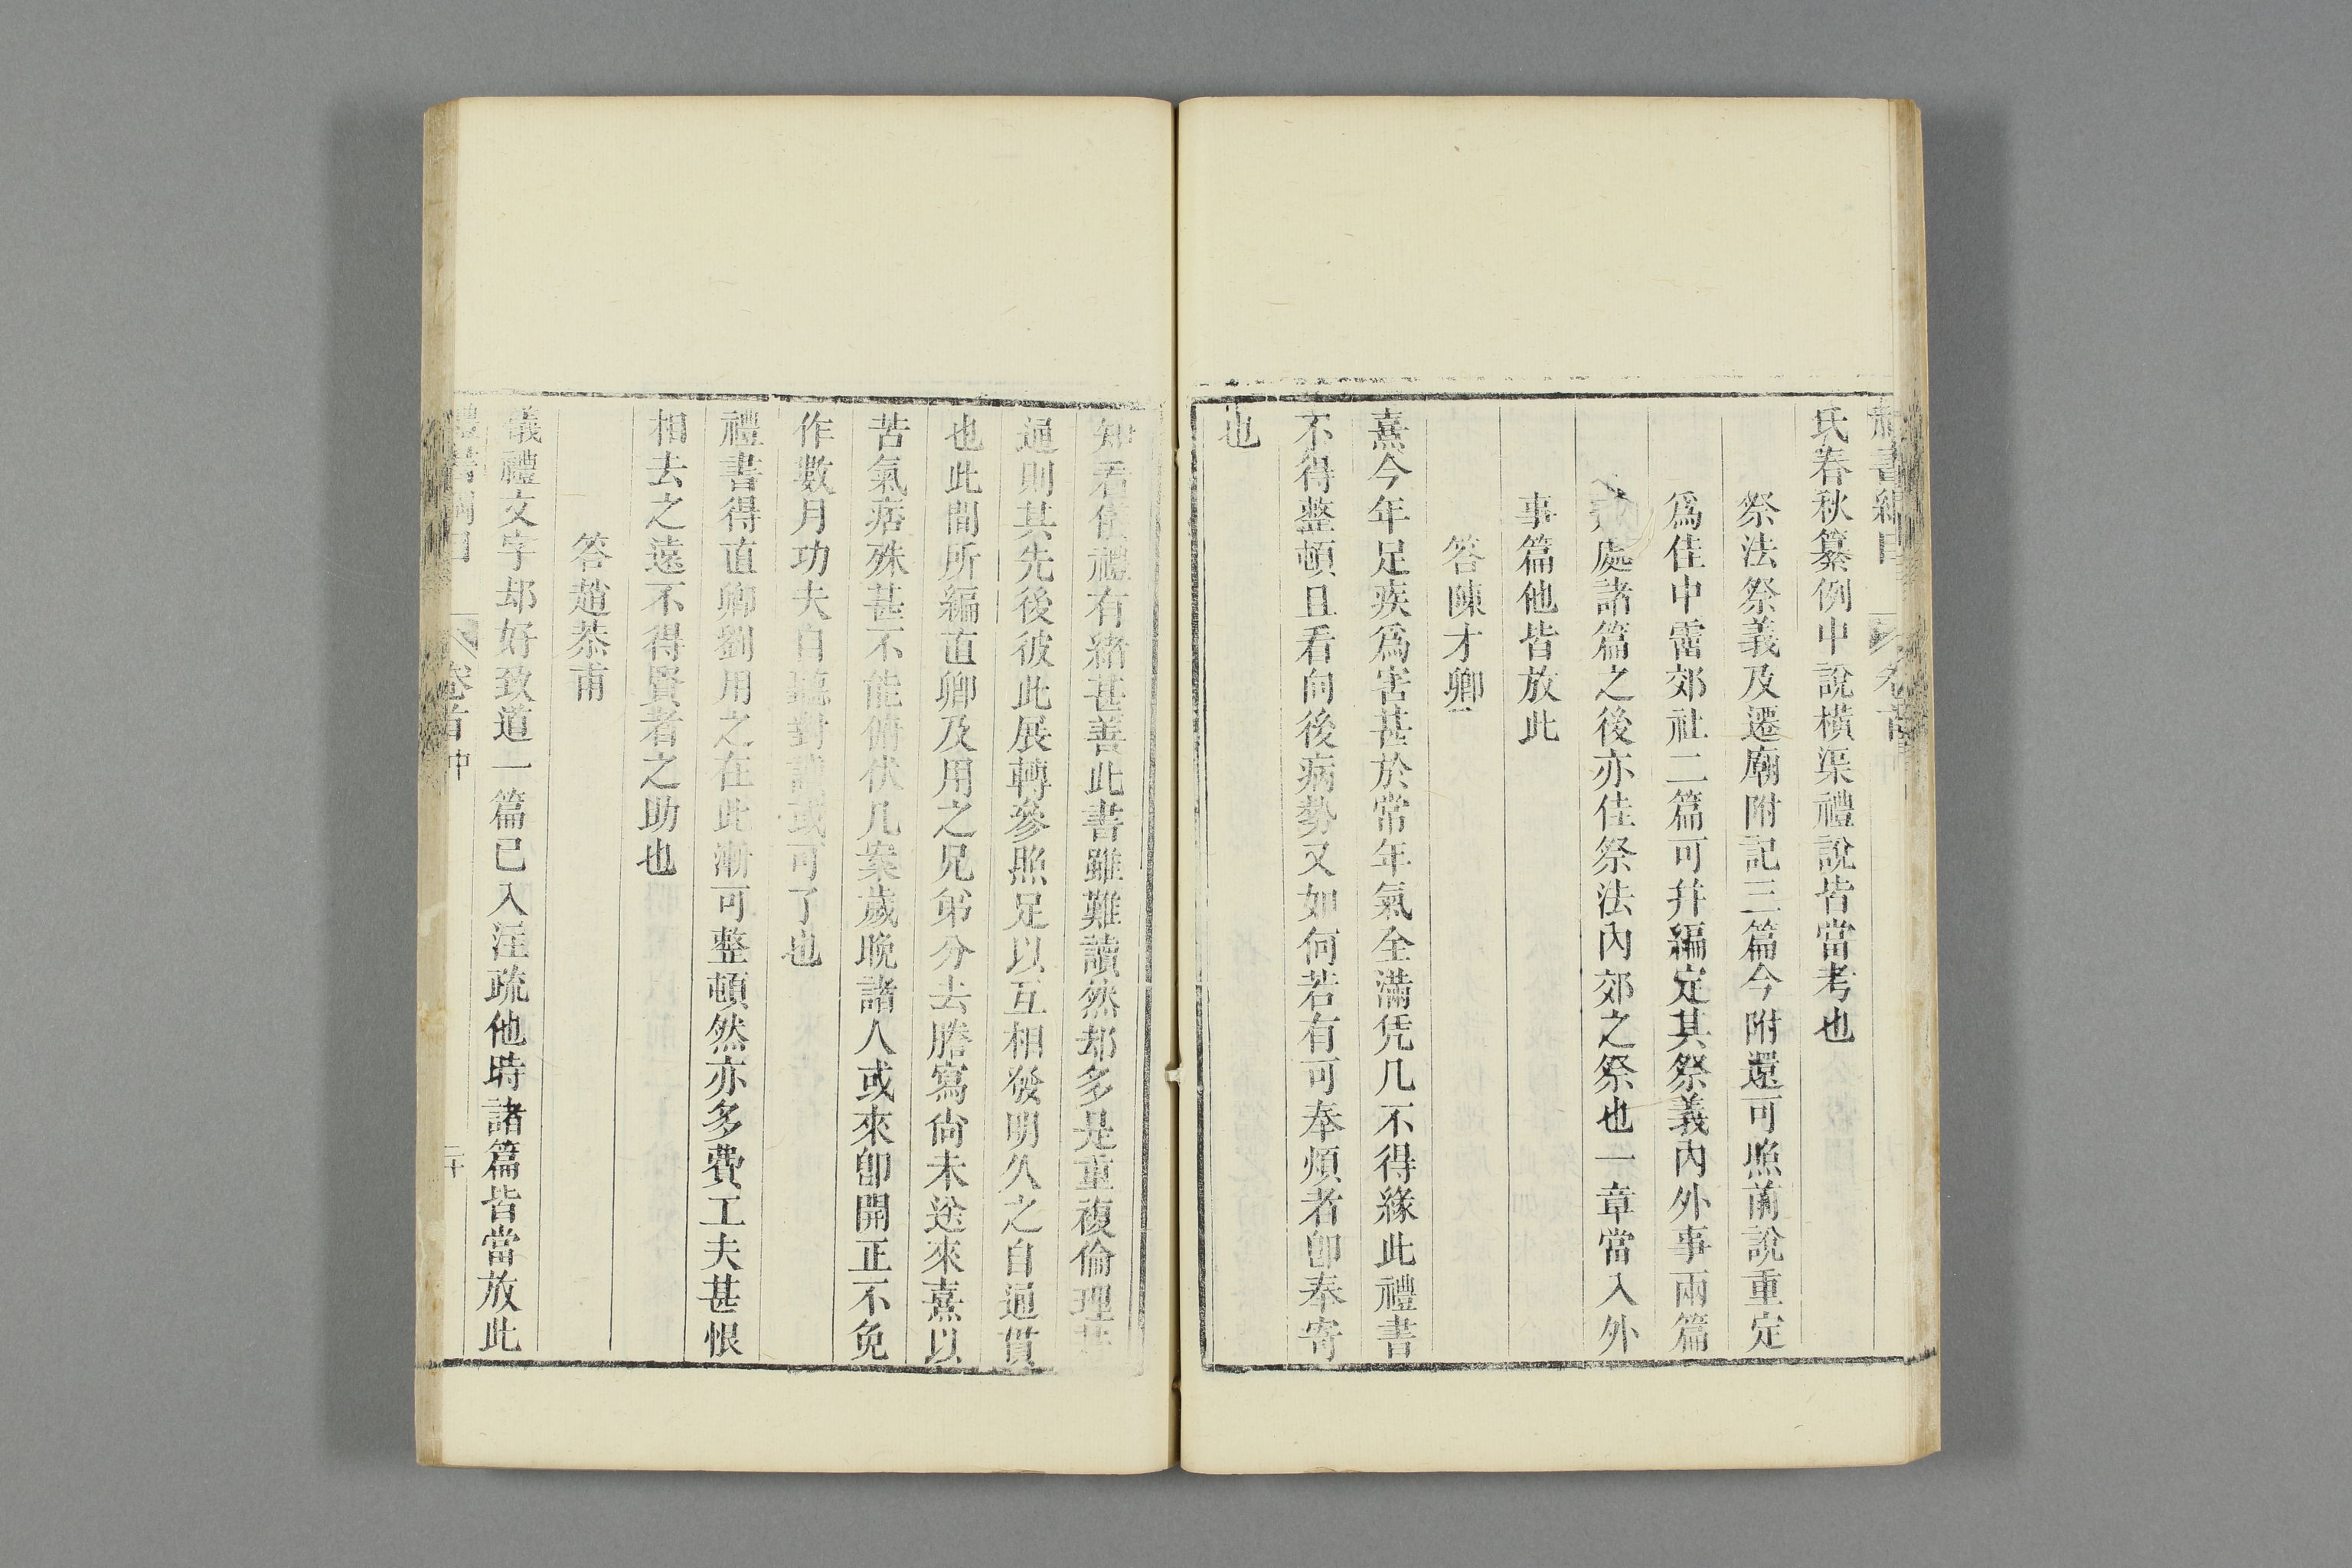 禮書綱目 卷首
氏春秋纂例中說橫渠禮說皆當考也
祭法祭義及遷廟附記三篇今附還可照前說重定
爲佳中霤郊社二篇可幷編定其祭義內外事兩篇
處諸篇之後亦佳祭法內郊之祭也一章當入外
事篇他皆放此
答陳才卿
熹今年足疾爲害甚於常年氣全滿凭几不得緣此禮書
不得整頓且看向後病勢又如何若有可奉煩者卽奉寄
也
知看儀禮有緒甚善此書雖難讀然却多是重複倫理若
通則其先後彼此展轉參照足以互相發明久之自通貫
也此間所編直卿及用之兄弟分去謄寫尙未送來熹以
苦氣痞殊甚不能俯伏几案歲晚諸人或來卽開正不免
作數月功夫自聽對讀或可了也
禮書得直卿劉用之在此漸可整頓然亦多費工夫甚恨
相去之遠不得賢者之助也
答趙恭甫
儀禮文字却好致道一篇已入注疏他時諸篇皆當放此
禮書綱目 卷首中 二十